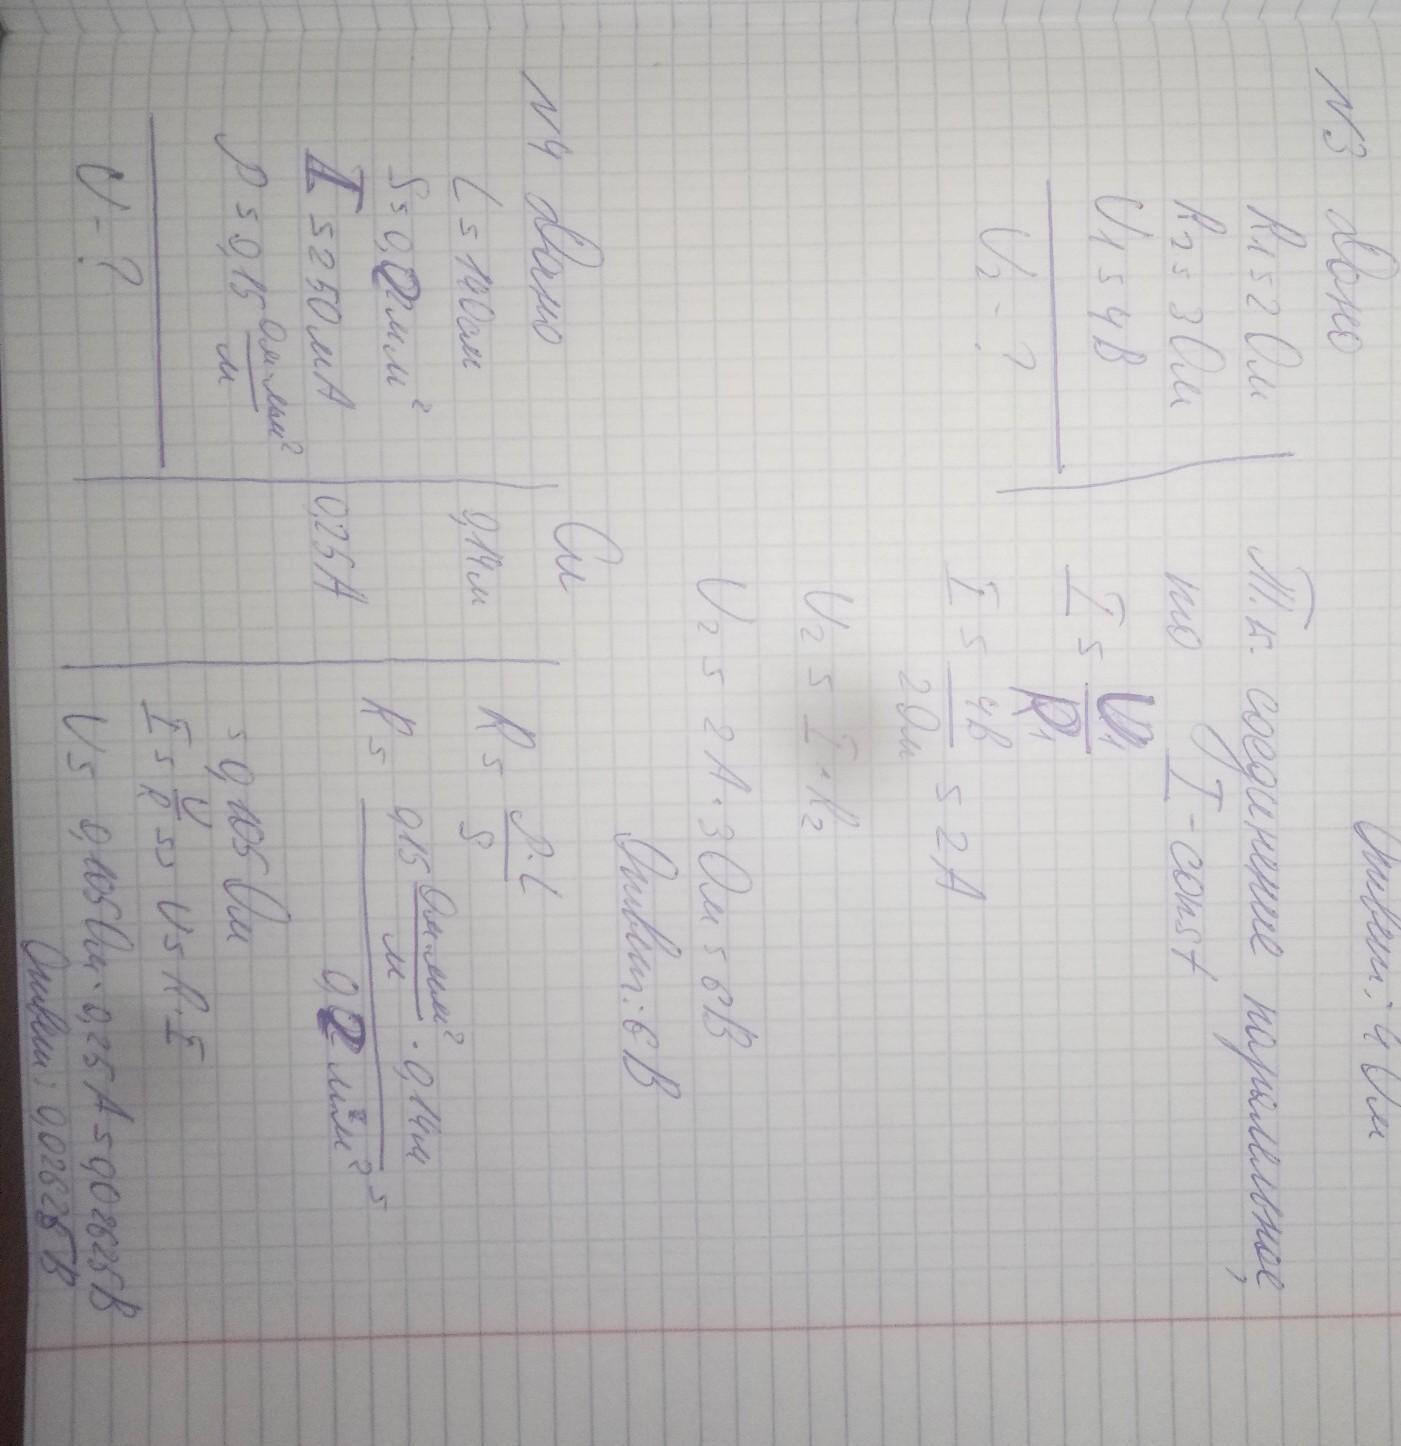 Ответ: 4 Ом
N3 Дано
R₁ = 2 Ом
R₂ = 3 Ом
U₁ = 4В
U₂ - ?
Т.к. соединение паралельное,
то I - const
I = U₁/R₁
I = 4В/2Ом = 2А
U₂ = I · R₂
U₂ = 2А · 3 Ом = 6В
Ответ: 6В
N4 Дано
L = 14 см
S = 0,2 мм²
I = 250 мА
ρ = 0,15 Ом·мм²/м
U - ?
Си
0,14м
0,25А
R = ρ·L/S
R = 0,15 Ом·мм²/м · 0,14м / 0,2 мм² =
= 0,105 Ом
I = U/R => U = R · I
U = 0,105 Ом · 0,25 А = 0,02625В
Ответ: 0,02625В